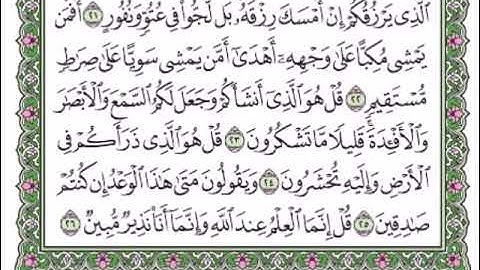 ٱلَّذِى يَرْزُقُكُمْ إِنْ أَمْسَكَ رِزْقَهُۥ بَل لَّجُّوا۟ فِى عُتُوٍّ وَنُفُورٍ ٢١ أَفَمَن
يَمْشِى مُكِبًّا عَلَىٰ وَجْهِهِۦٓ أَهْدَىٰٓ أَمَّن يَمْشِى سَوِيًّا عَلَىٰ صِرَٰطٍ
مُّسْتَقِيمٍ ٢٢ قُلْ هُوَ ٱلَّذِىٓ أَنشَأَكُمْ وَجَعَلَ لَكُمُ ٱلسَّمْعَ وَٱلْأَبْصَٰرَ
وَٱلْأَفْـِٔدَةَ قَلِيلًا مَّا تَشْكُرُونَ ٢٣ قُلْ هُوَ ٱلَّذِى ذَرَأَكُمْ فِى
ٱلْأَرْضِ وَإِلَيْهِ تُحْشَرُونَ ٢٤ وَيَقُولُونَ مَتَىٰ هَٰذَا ٱلْوَعْدُ إِن كُنتُمْ
صَٰدِقِينَ ٢٥ قُلْ إِنَّمَا ٱلْعِلْمُ عِندَ ٱللَّهِ وَإِنَّمَآ أَنَا۠ نَذِيرٌ مُّبِينٌ ٢٦